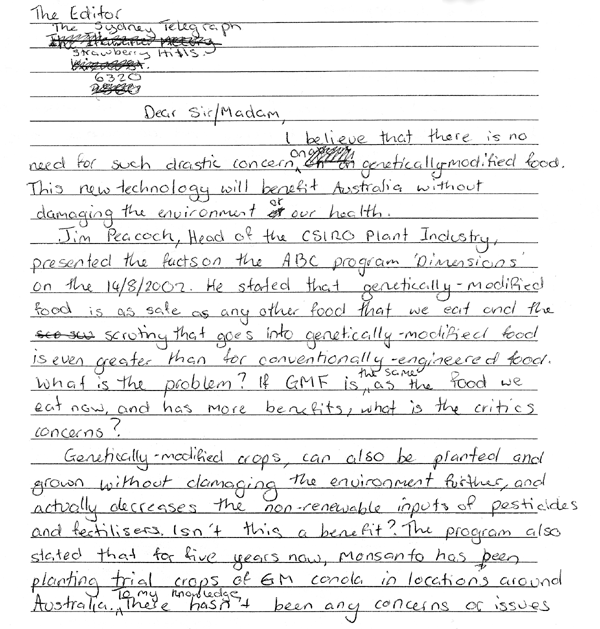 The Editor
The Sydney Telegraph
Strawberry Hills.
6320
Dear Sir/Madam,
I believe that there is no
need for such drastic concern on genetically modified food.
This new technology will benefit Australia without
damaging the environment or our health.
Jim Peacoch, Head of the CSIRO Plant Industry,
presented the facts on the ABC program 'Dimensions'
on the 14/8/2002. He stated that genetically-modified
food is as safe as any other food that we eat and the
scrutiny that goes into genetically-modified food
is even greater than for conventionally-engineered food.
What is the problem? If GMF is the same as the food we
eat now, and has more benefits, what is the critics
concerns?
Genetically-modified crops, can also be planted and
grown without damaging the environment further, and
actually decreases the non-renewable inputs of pesticides
and fertilisers. Isn't this a benefit? The program also
stated that for five years now, Monsanto has been
planting trial crops of GM canola in locations around
Australia. To my knowledge, there hasn't been any concerns or issues